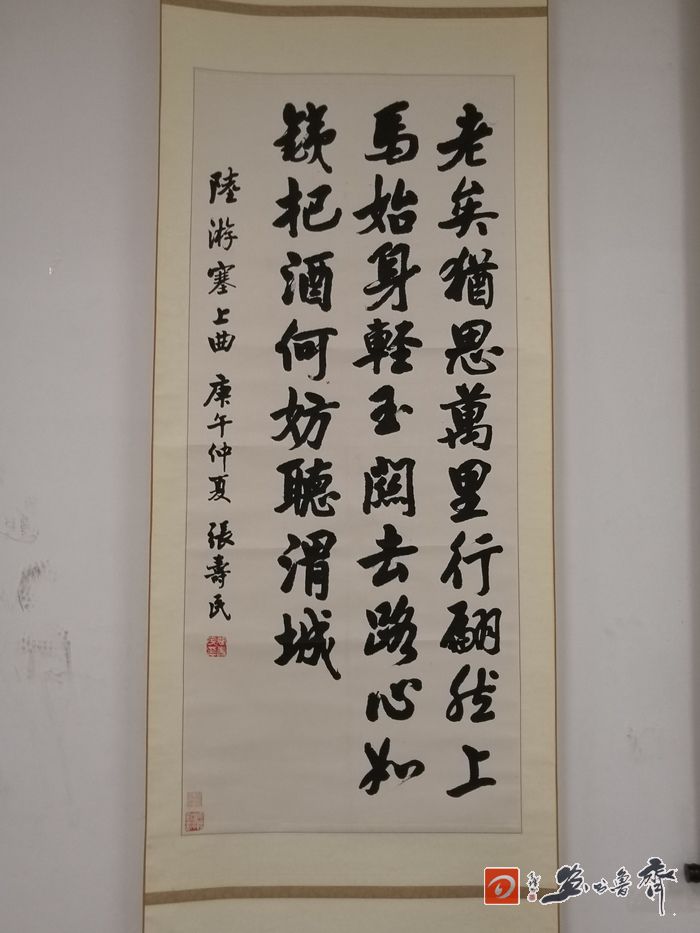 老矣猶思萬里行翩然上
馬始身輕玉關去路心如
鐵把酒何妨聽渭城
陸游塞上曲 庚午仲夏 張壽民
齊魯书画